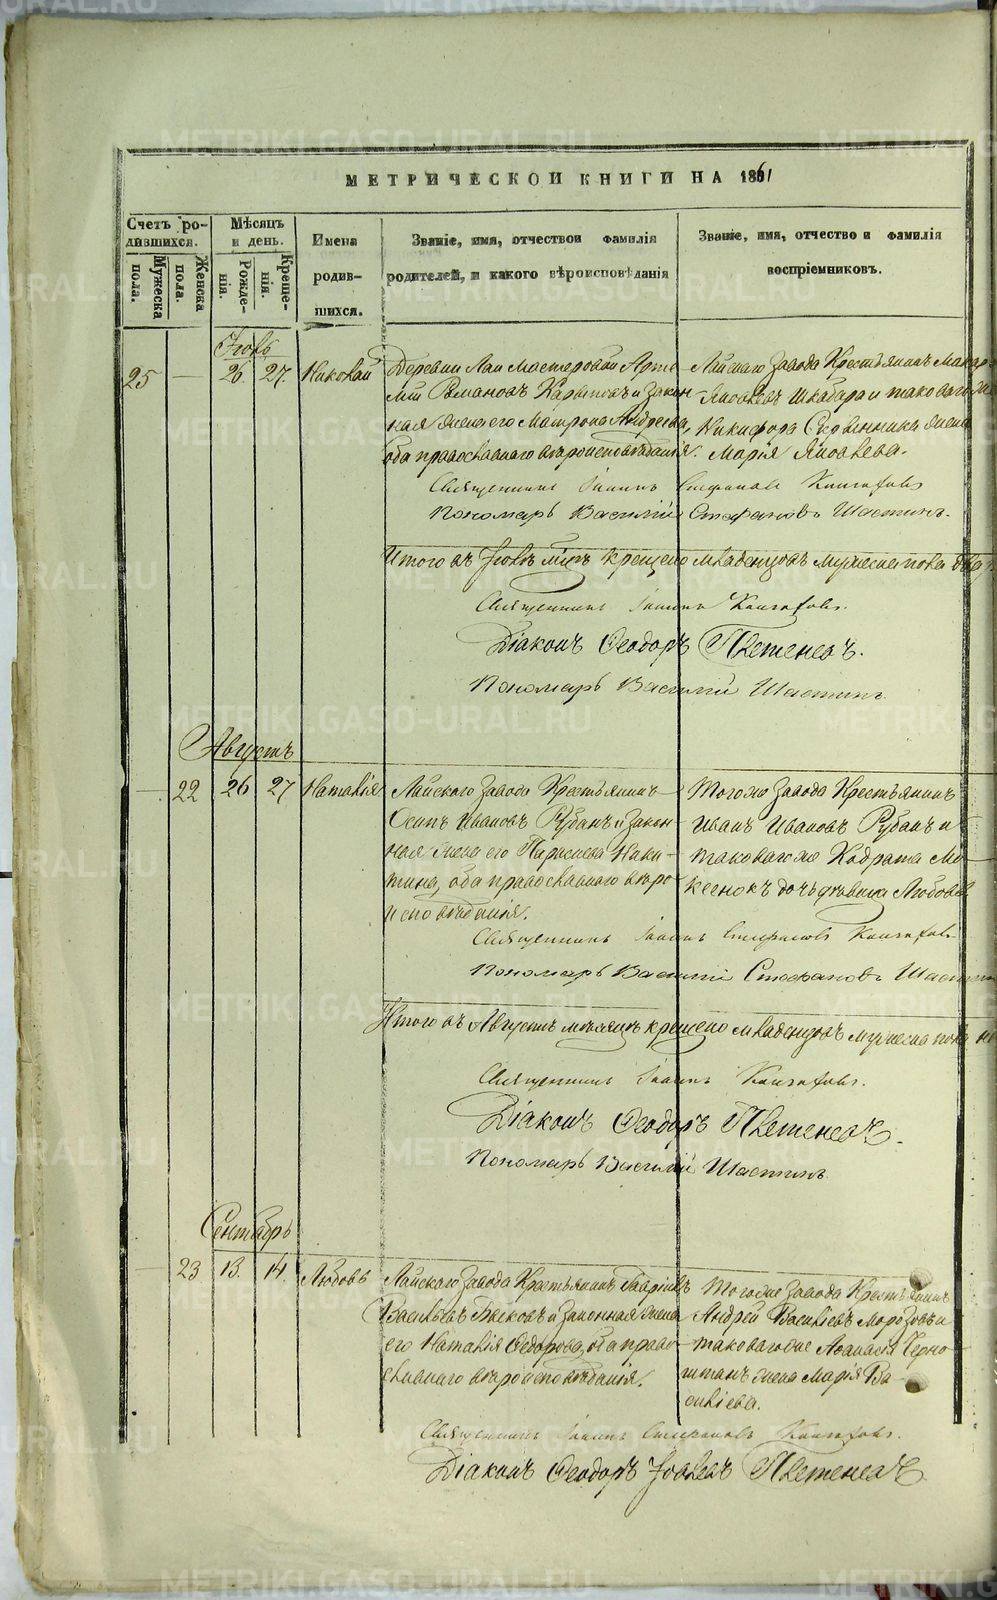 МЕТРИЧЕСКОЙ КНИГИ НА 1861
Счетъ ро-
дившихся.
Мѣсяцъ
и день.
Имена
родив-
шихся.
Званіе, имя, отчество и фамилія
родителей, и какого вѣроисповѣданія
Званіе, имя, отчество и фамилія
воспріемниковъ.
Мужеска
пола.
Женска
пола.
Рожде-
нія.
Креще-
нія.
Іюль
25 — 26. 27. Николай
Деревни Лаи Мостеровый Арте-
мій Романовъ и закон-
ная жена его Матрона Андреева,
оба православнаго вѣроисповѣданія.
Лайскаго завода Крестьянинъ Макар
Яковлевъ Шкабара и таковаго же
Никифора жена
Марія Яковлева.
Священникъ Іоаннъ Стефановъ
Пономарь Василій Стефановъ Шастинъ.
Итого въ Іюлѣ м-цѣ крещено младенцовъ мужеска пола два
Священникъ Іоаннъ
Діаконъ Ѳеодоръ Плетеневъ.
Пономарь Василій Шастинъ
Августъ
— 22 26 27 Наталія
Лайскаго завода Крестьянинъ
Осипъ Ивановъ Рубанъ и закон-
ная жена его Параскева Ники-
тина, оба православнаго вѣро-
исповѣданія.
Того же завода Крестьянинъ
Иванъ Ивановъ Рубанъ и
таковаго же Кодрата Мо-
дочь дѣвица Любовь
Священникъ Іоаннъ Стефановъ
Пономарь Василій Стефановъ Шастинъ
Итого въ Августѣ мѣсяцѣ крещено младенцовъ мужеска пола
Священникъ Іоаннъ
Діаконъ Ѳеодоръ Плетеневъ.
Пономарь Василій Шастинъ
Сентябрь
— 23 13. 14. Любовь
Лайскаго завода Крестьянинъ Гаврилъ
Васильевъ Быковъ и законная жена
его Наталія Ѳедорова, оба право-
славнаго вѣроисповѣданія.
Того же завода Крестьянинъ
Андрей Василіевъ Морозовъ и
таковаго же Аѳанасія Черно-
штанъ жена Марія Ва-
силіева.
Священникъ Іоаннъ Стефановъ
Діаконъ Ѳеодоръ Іовлевъ Плетеневъ
METRIKI.GASO-URAL.RU